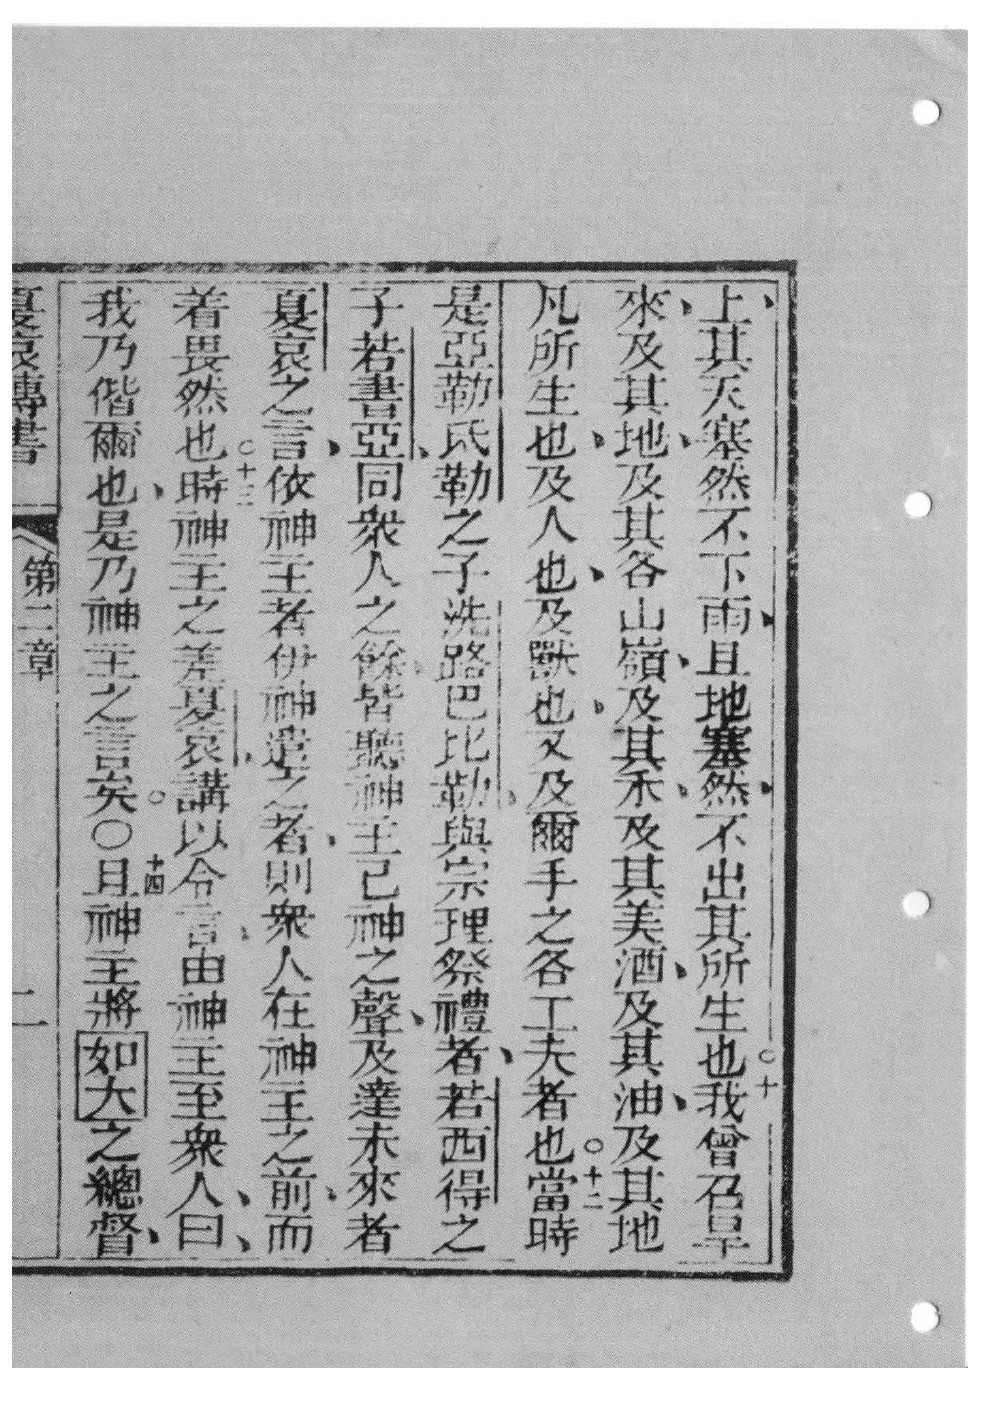 上、其天塞然不下雨、且地塞然、不出其所生也。十我曾召旱
來、及其地、及其各山嶺、及其禾、及其美酒、及其油、及其地
凡所生也、及人也、及獸也、又及爾手之各工夫者也。十二當時
是亞勒氏勒之子洗路巴比勒、與宗理祭禮者、若西得之
子若書亞、同衆人之餘、皆聽神王己神之聲、及達未來者
夏哀之言、依神王者伊神遣之者、則衆人在神王之前、而
着畏然也。十三時神王之差夏哀、講以令言、由神王至衆人、曰、
我乃偕爾也、是乃神王之言矣。〇十四且神王將如大之總督、
夏哀傳書 第二章 二